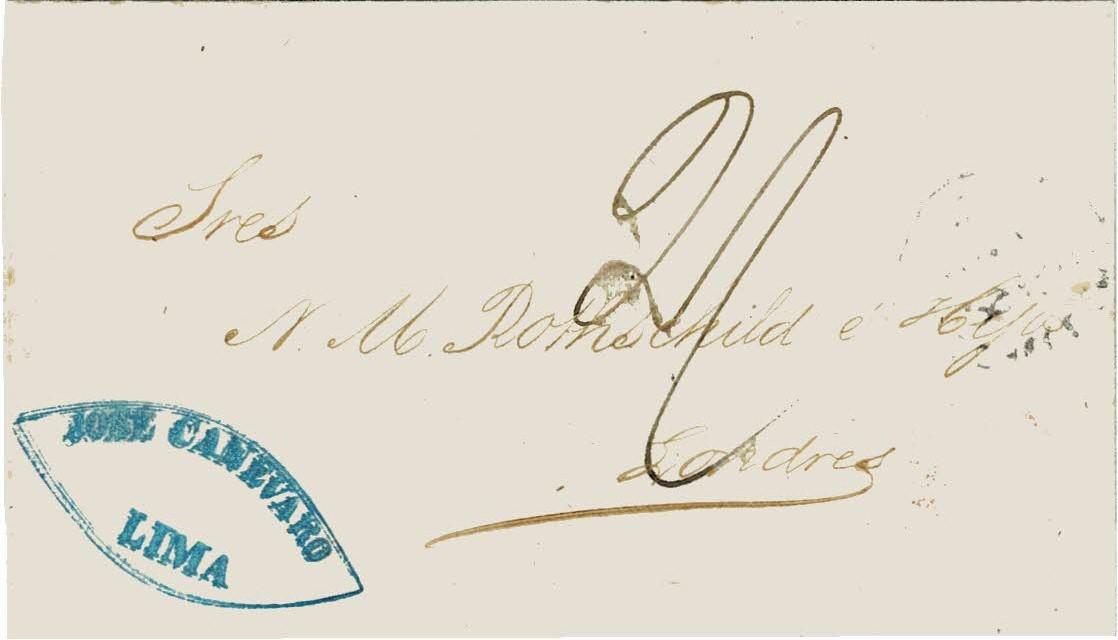 Sres
N. M. Rothschild é Hijos
Londres
JOSE CANEVARO
LIMA